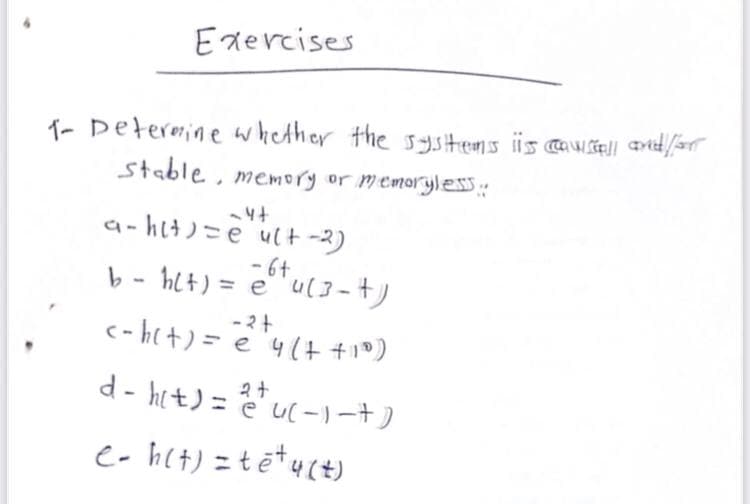 Exercises
1- Determine whether the systems iis causall and/or
stable, memory or memoryless::
a - h(t) = e^-4t u(t-2)
b - h(t) = e^-6t u(3-t)
c - h(t) = e^-2t u(t+10)
d - h(t) = e^2t u(-1-t)
e - h(t) = t e^-t u(t)